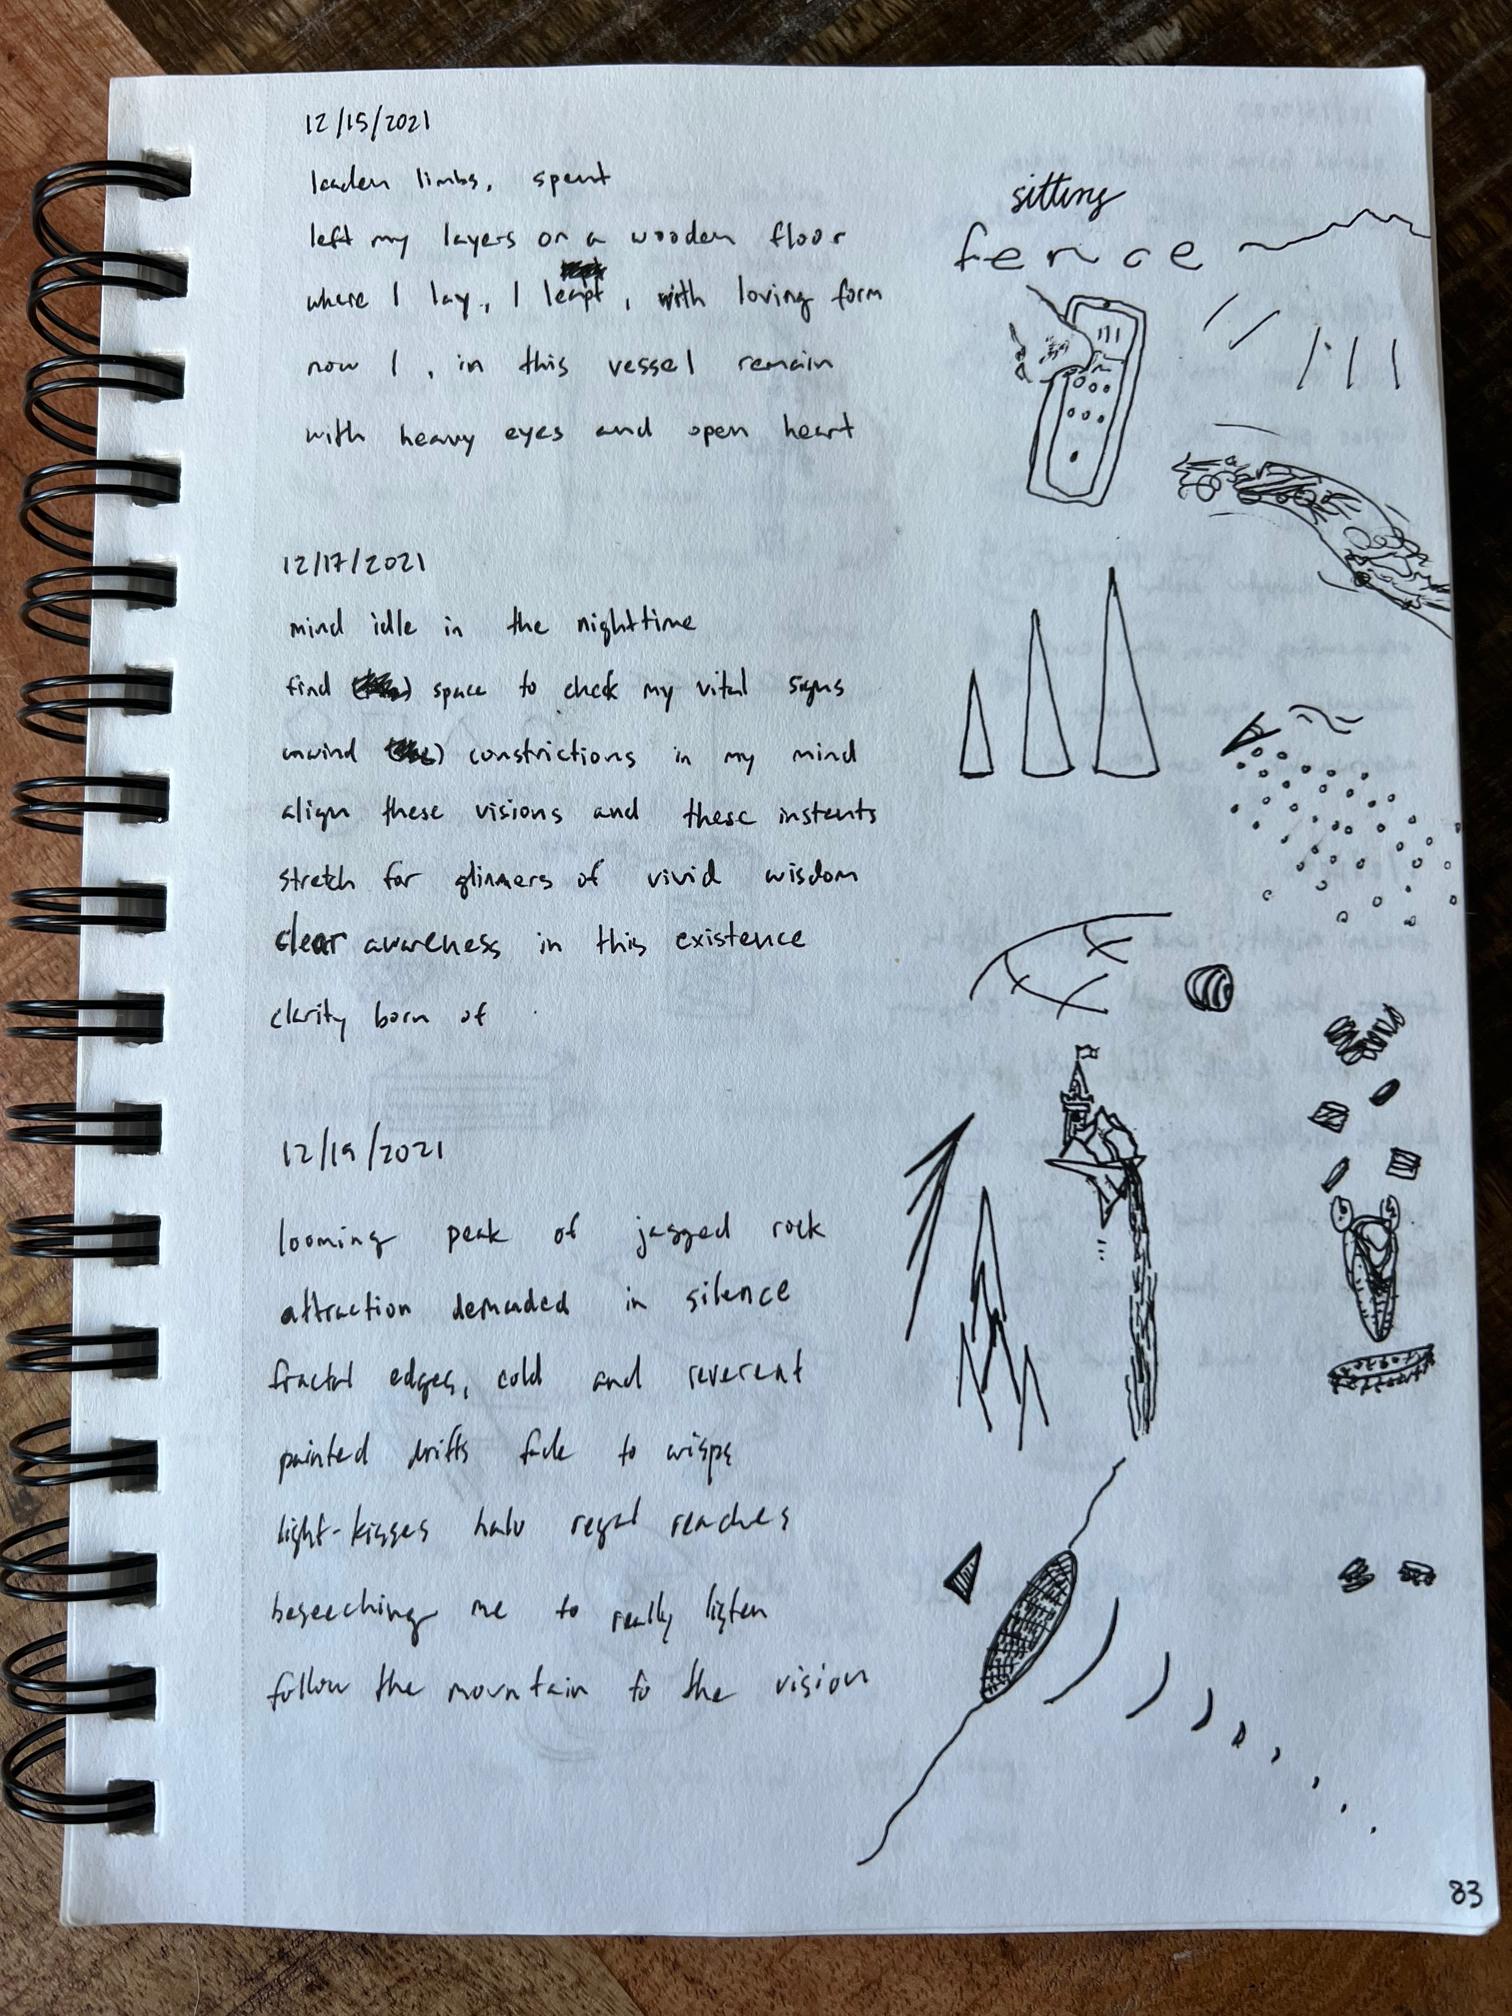 12/15/2021
leaden limbs, spent
left my layers on a wooden floor
where I lay, I leapt, with loving form
now I, in this vessel remain
with heavy eyes and open heart
12/17/2021
mind idle in the nighttime
find space to check my vital signs
unwind constrictions in my mind
align these visions and these instants
stretch for glimmers of vivid wisdom
clear awareness in this existence
clarity born of
12/19/2021
looming peak of jagged rock
attraction demanded in silence
fractal edges, cold and reverent
painted drifts fade to wisps
light-kisses halo regal reaches
beseeching me to really listen
follow the mountain to the vision
sitting
fence
83